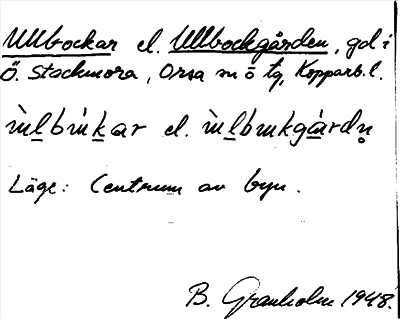 Ullbockar el. Ullbockgården, gd i
Ö. Stackmora, Orsa sn o tg, Kopparb. l.
el.
Läge: Centrum av byn.
B. Granholm 1948.